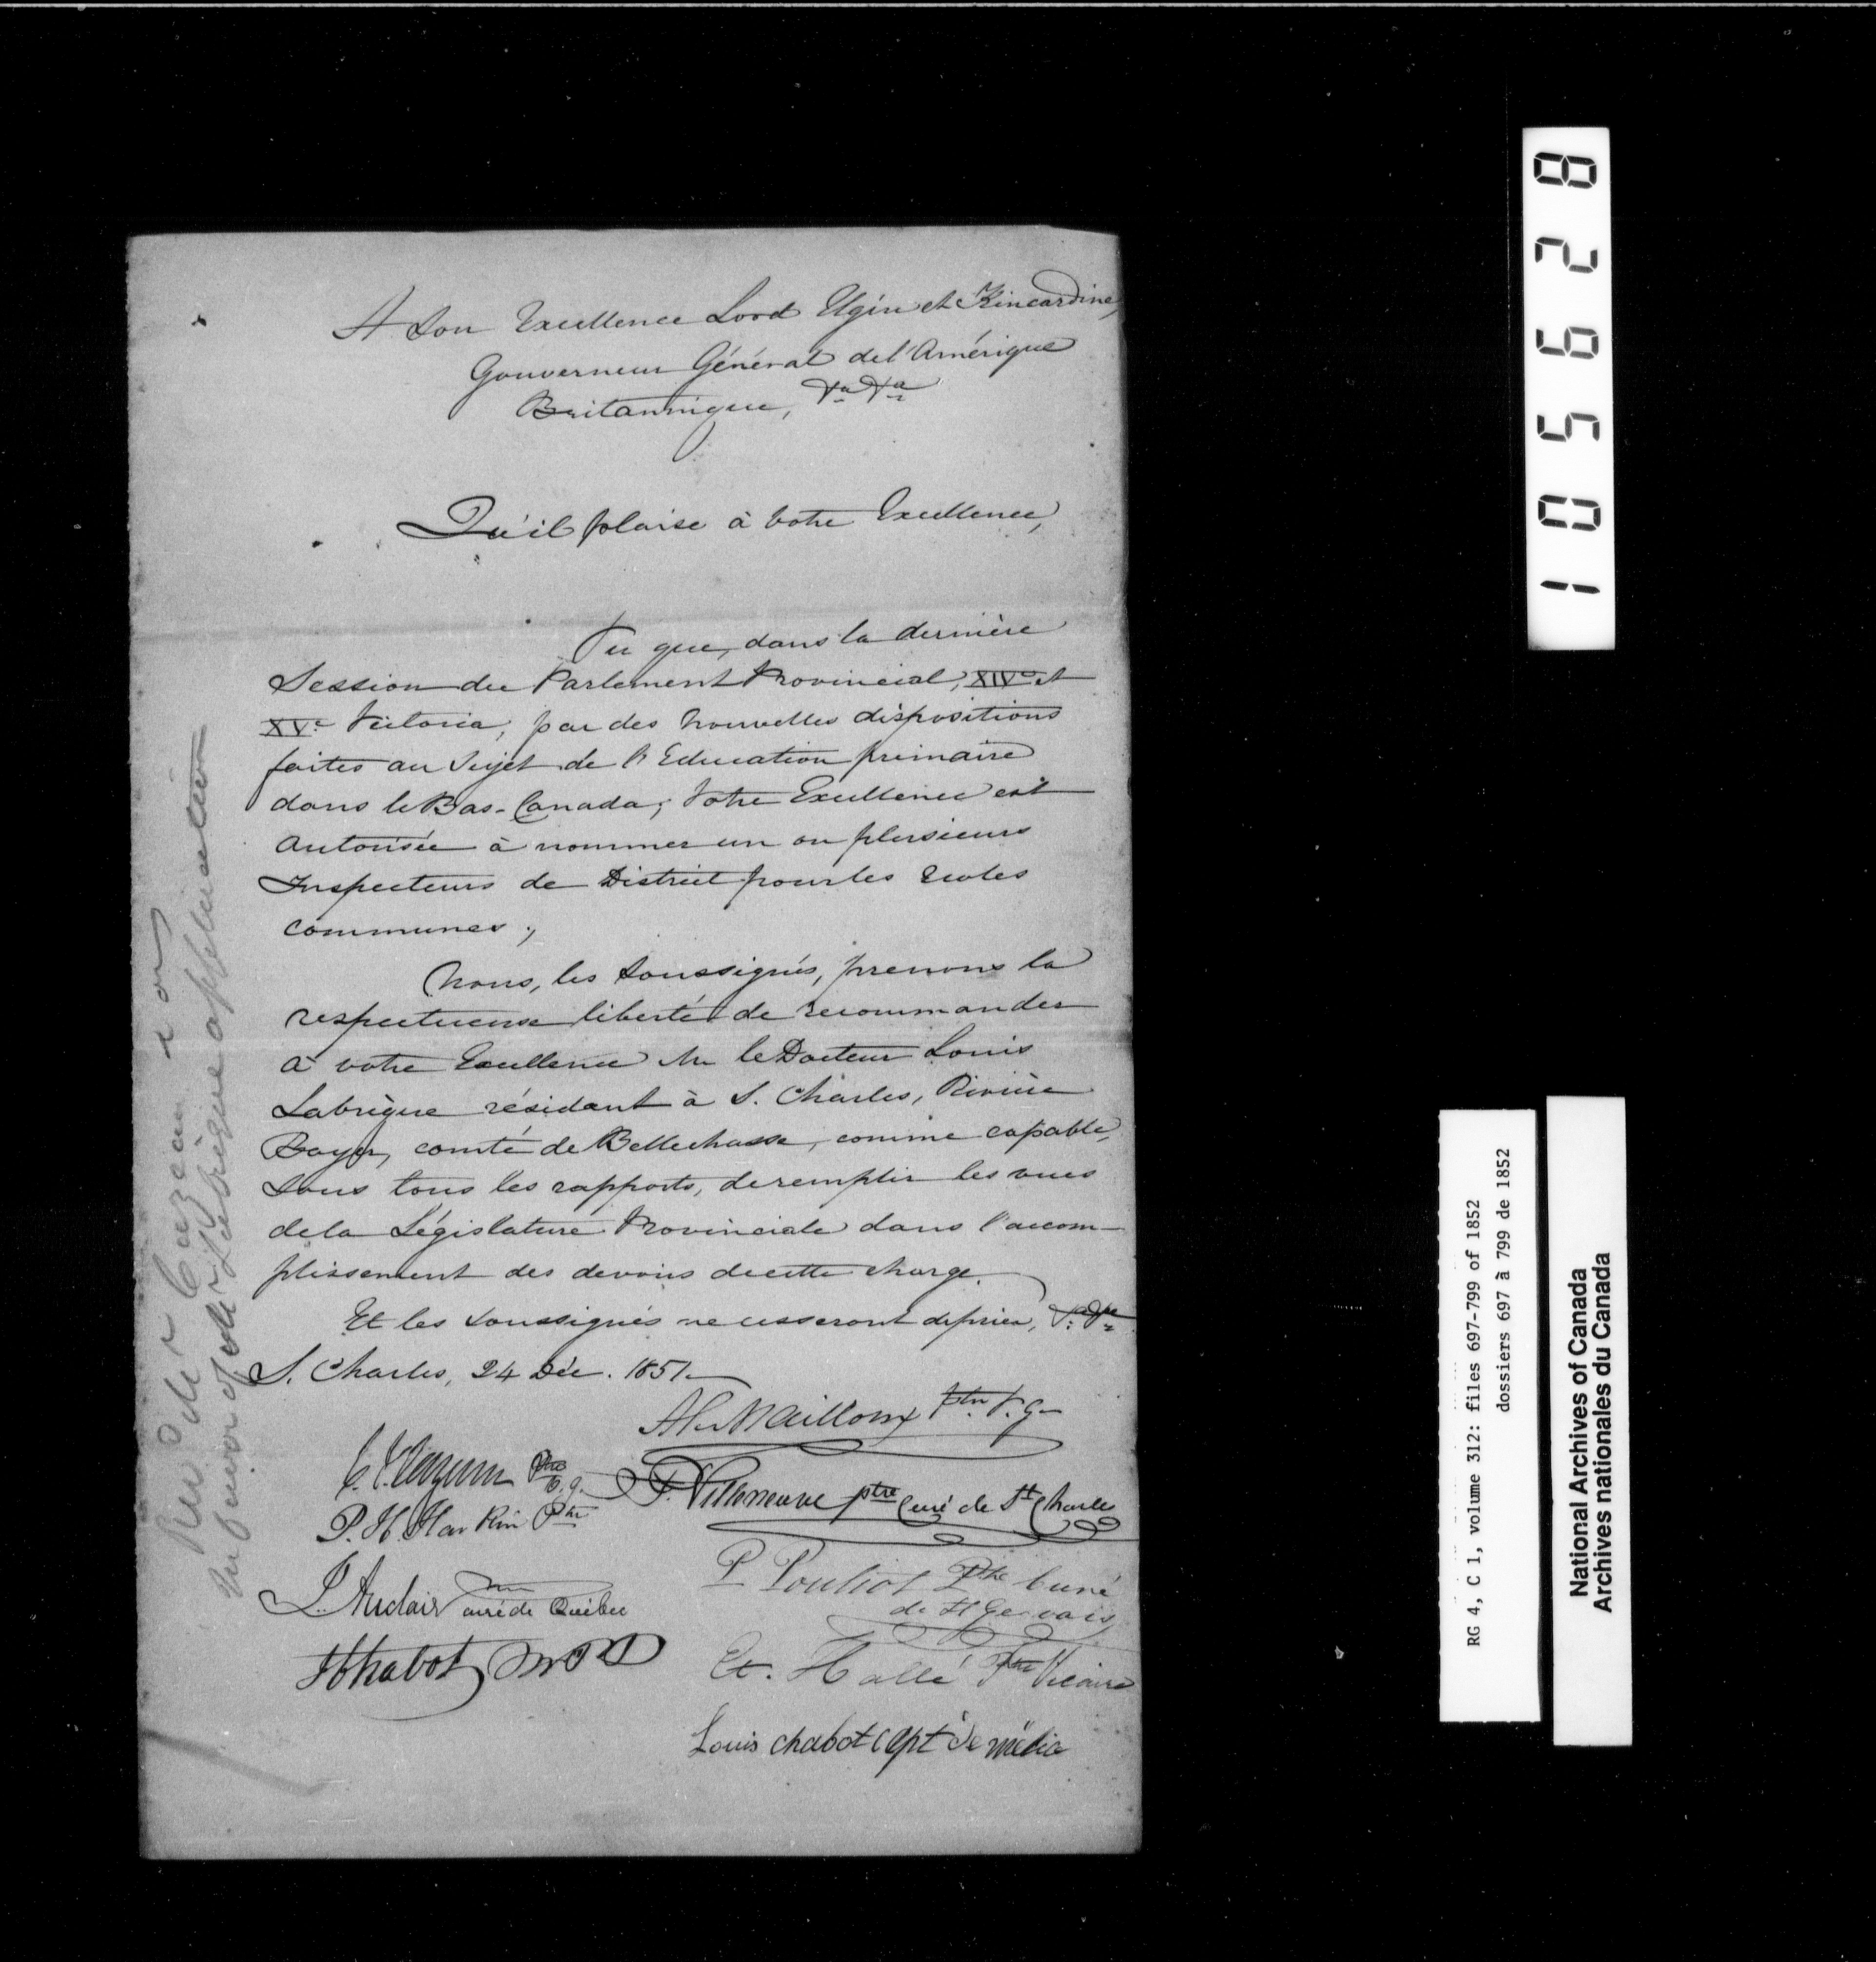 A Son Excellence Lord Elgin et Kincardine,
Gouverneur Général de l'Amérique
Britannique, &a &a
Qu'il plaise à votre Excellence,
Vu que, dans la dernière
Session du Parlement Provincial, XIVe et
XVe Victoria, par des nouvelles dispositions
faites au sujet de l'Education primaire
dans le Bas-Canada; Votre Excellence est
autorisée à nommer un ou plusieurs
Inspecteurs de District pour les Ecoles
communes;
Nous, les soussignés, prenons la
respectueuse liberté de recommander
à votre Excellence Mr le Docteur Louis
Labrèque résidant à S. Charles, Rivière
Boyer, comté de Bellechasse, comme capable,
sous tous les rapports, de remplir les vues
de la Législature Provinciale dans l'accom-
plissement des devoirs de cette charge.
Et les soussignés ne cesseront de prier, &a &a
S. Charles, 24 Déc. 1851.
Alex Mailloux Ptre V. G.
C. F. Cazeau Ptre V. G.
P. Villeneuve ptre Curé de St Charles
P. H. Harkin Ptre
P. Pouliot Ptre Curé
de St Gervais
J. Auclair curé de Québec
Et. Hallé Ptre Vicaire
J Chabot M P P
Louis chabot Capt de milice
Rev'd Mr Cazeau &
in favor of Doctr Labrèque application
8 2 9 5 0 1
RG 4, C 1, volume 312: files 697-799 of 1852
dossiers 697 à 799 de 1852
National Archives of Canada
Archives nationales du Canada